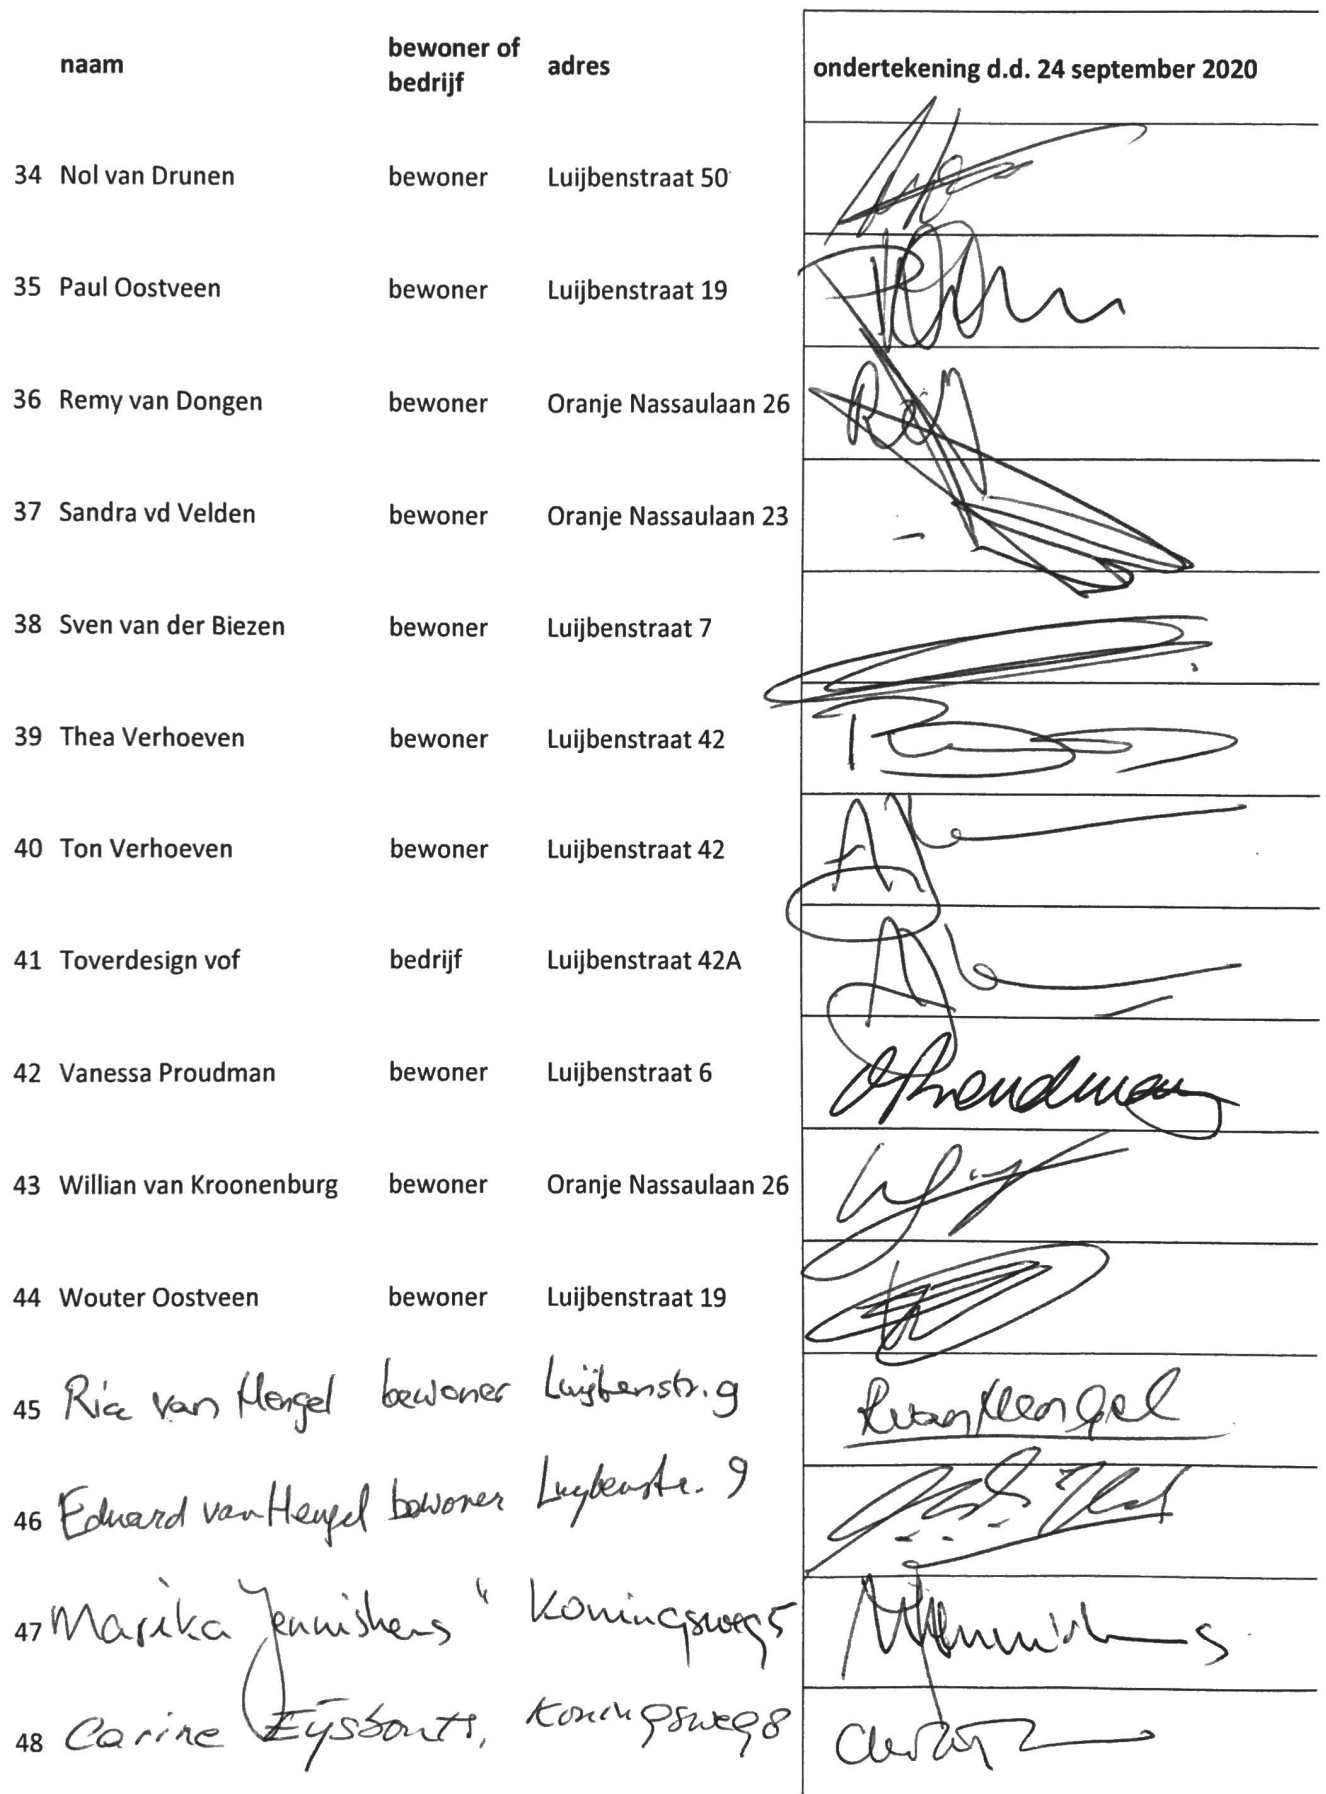 naam bewoner of bedrijf adres ondertekening d.d. 24 september 2020
34 Nol van Drunen bewoner Luijbenstraat 50
35 Paul Oostveen bewoner Luijbenstraat 19
36 Remy van Dongen bewoner Oranje Nassaulaan 26
37 Sandra vd Velden bewoner Oranje Nassaulaan 23
38 Sven van der Biezen bewoner Luijbenstraat 7
39 Thea Verhoeven bewoner Luijbenstraat 42
40 Ton Verhoeven bewoner Luijbenstraat 42
41 Toverdesign vof bedrijf Luijbenstraat 42A
42 Vanessa Proudman bewoner Luijbenstraat 6
43 Willian van Kroonenburg bewoner Oranje Nassaulaan 26
44 Wouter Oostveen bewoner Luijbenstraat 19
45 Ria van Hengel bewoner Luijbenstr. 9 RvanHengel
46 Eduard van Hengel bewoner Luybenstr. 9
47 Marika Jenniskens " Koningsweg 5
48 Carine Eijsbouts, Koningsweg 8